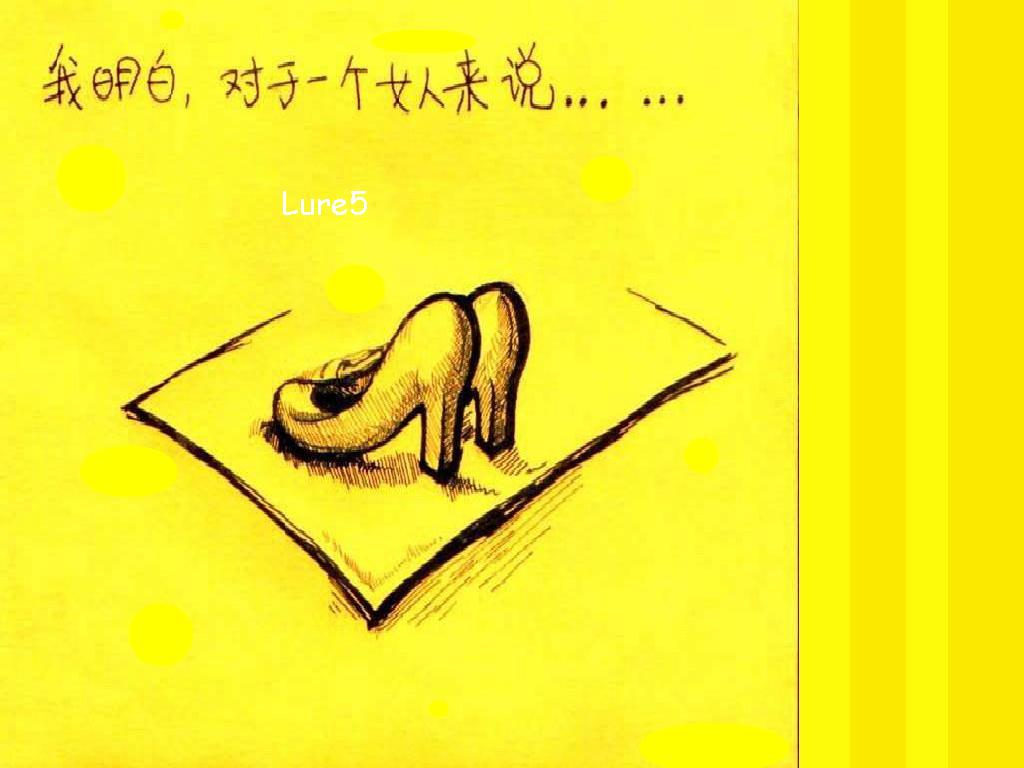 我明白，对于一个女人来说... ...
Lure5